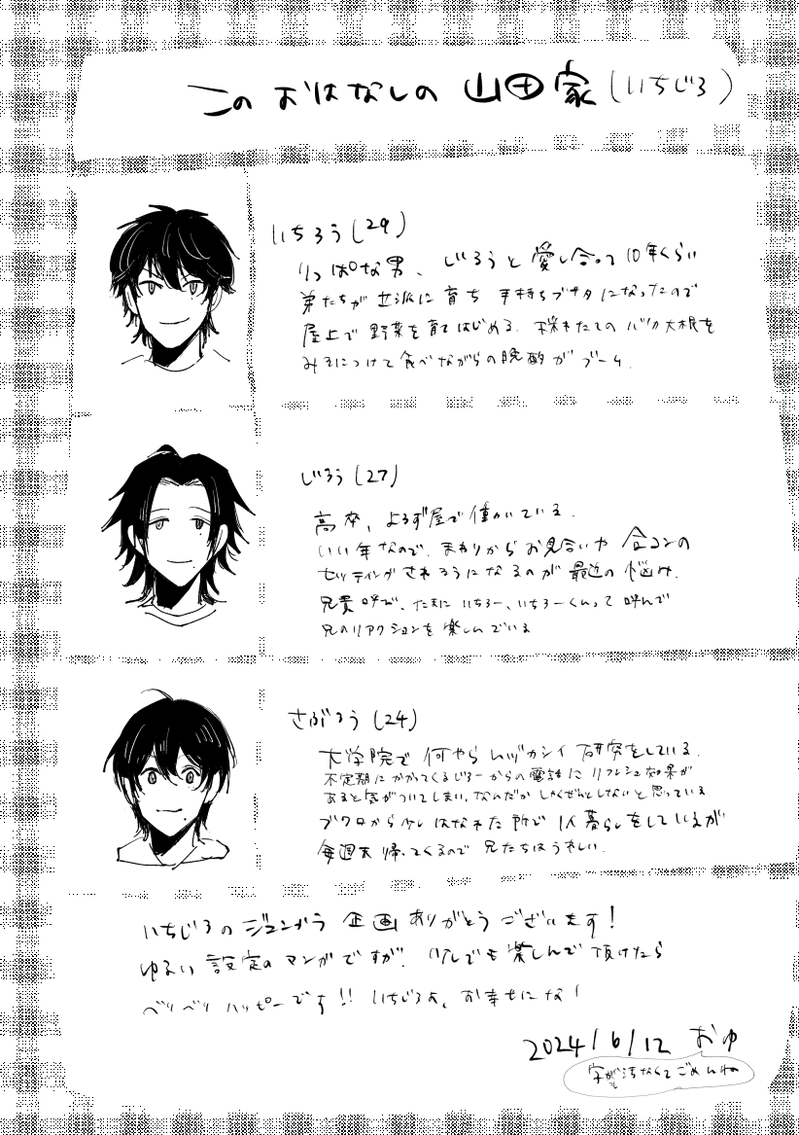 このおはなしの 山田家(いちじろ)
いちろう(29)
りっぱな男、じろうと愛し合って10年くらい
弟たちが立派に育ち 手持ちブサタになったので
屋上で野菜を育てはじめる。採れたてのバリカ大根を
みそにつけて食べながらの晩酌がブーム。
じろう(27)
高卒、よろず屋で働いている。
いい年なので、まわりからお見合いや合コンの
セッティングされそうになるのが最近の悩み。
兄貴呼び、たまにいちろー、いちろーくんって呼んで
兄のリアクションを楽しんでいる
さぶろう(24)
大学院で何やらムヅカシイ研究をしている。
不定期にかかってくるじろーからの電話にリフレッシュ効果が
あると気がついてしまい、なんだかしゃくぜんとしないと思っている
ブクロから少しはなれた所で1人暮らしをしているが
毎週末帰ってくるので兄たちはうれしい。
いちじろのジューンブラ企画ありがとうございます!
ゆるい設定のマンガですが、少しでも楽しんで頂けたら
ベリベリハッピーです!!いちじろよ、お幸せにな!
2024/6/12 おゆ
字が汚なくてごめんね